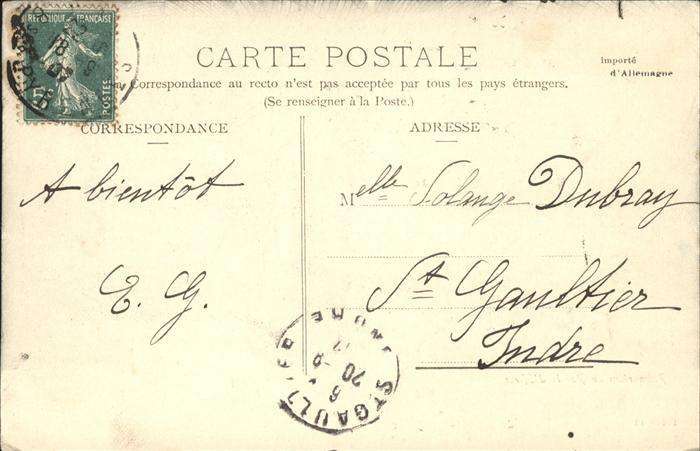 REPUBLIQUE FRANÇAISE
POSTES
CARTE POSTALE
Importé
d'Allemagne
Correspondance au recto n'est pas acceptée par tous les pays étrangers.
(Se renseigner à la Poste.)
CORRESPONDANCE
A bientôt
E. G.
ADRESSE
Melle Solange Dubray
St Gaultier
Indre
ST GAULTIER
INDRE